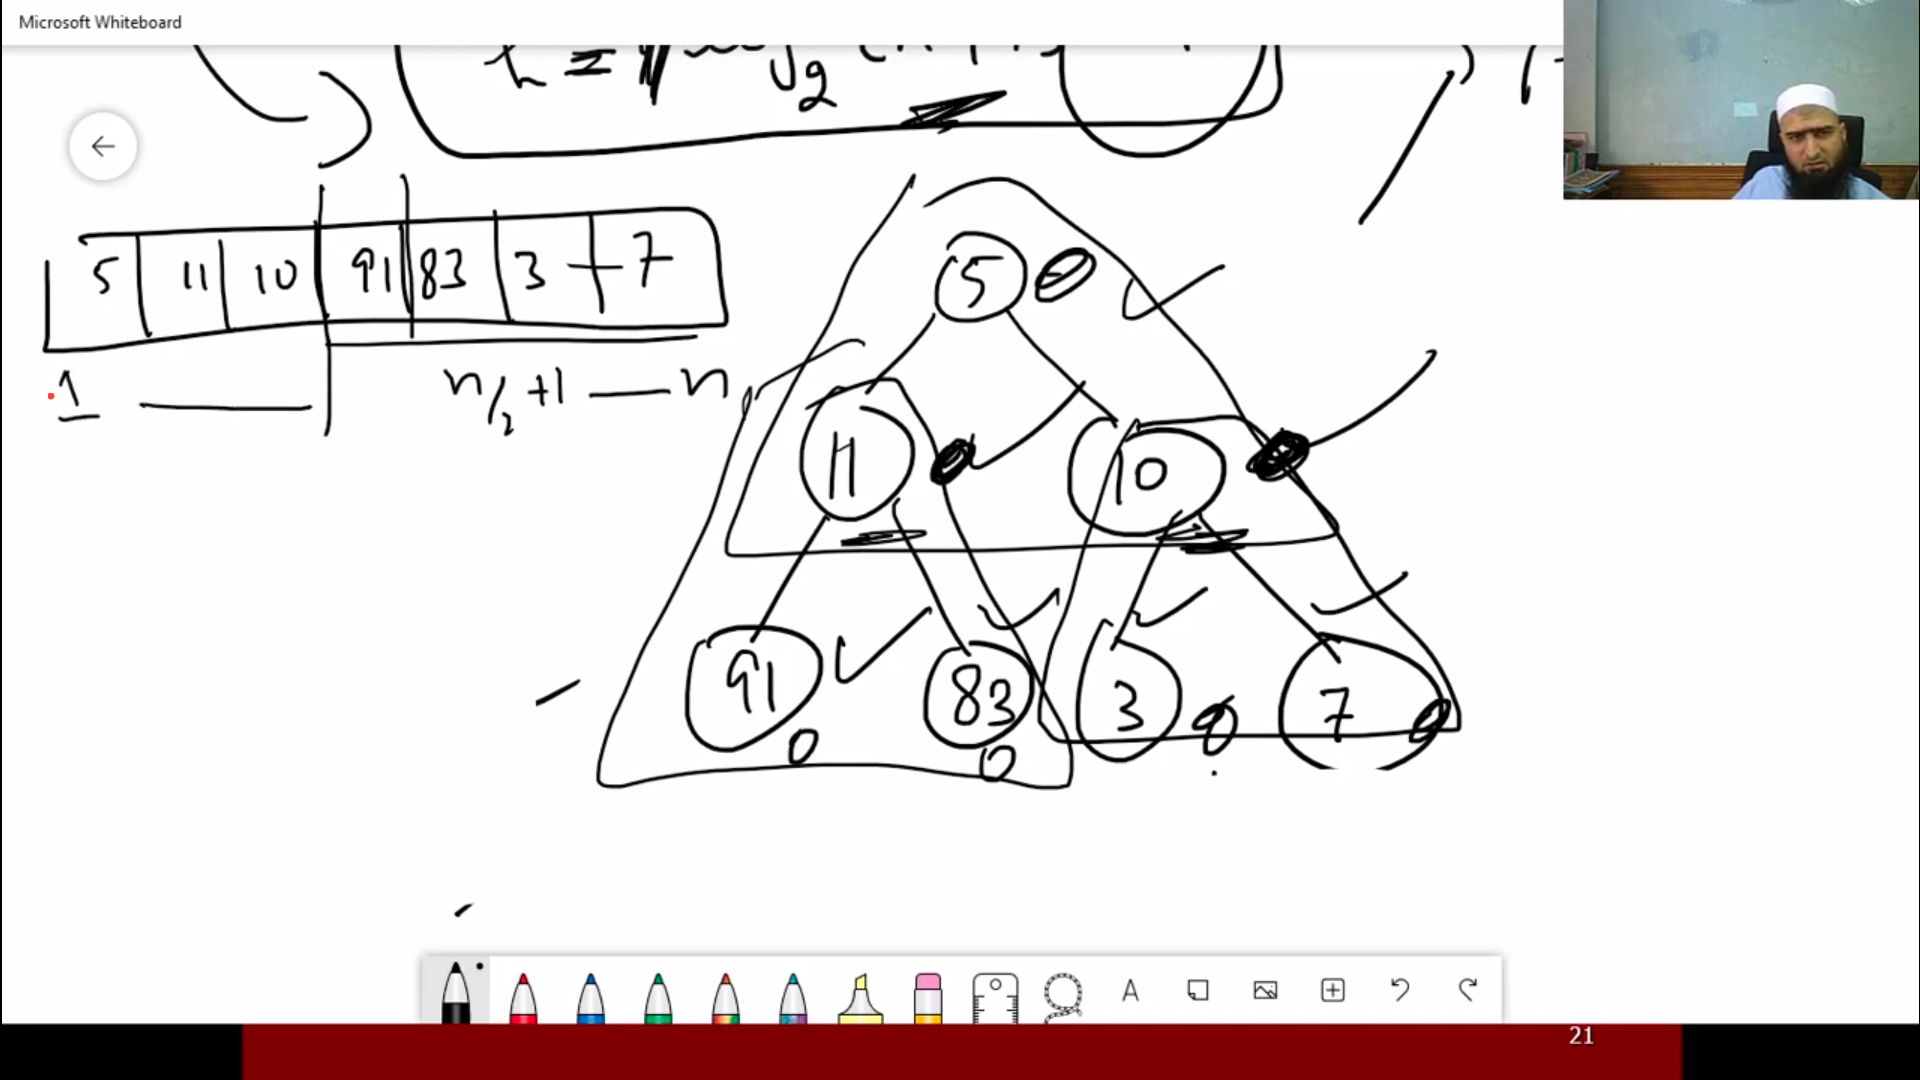 Microsoft Whiteboard
h =
5 11 10 91 83 3 7
1 n/2 +1 — n
5
11 10
91 83 3 7
0 0
21